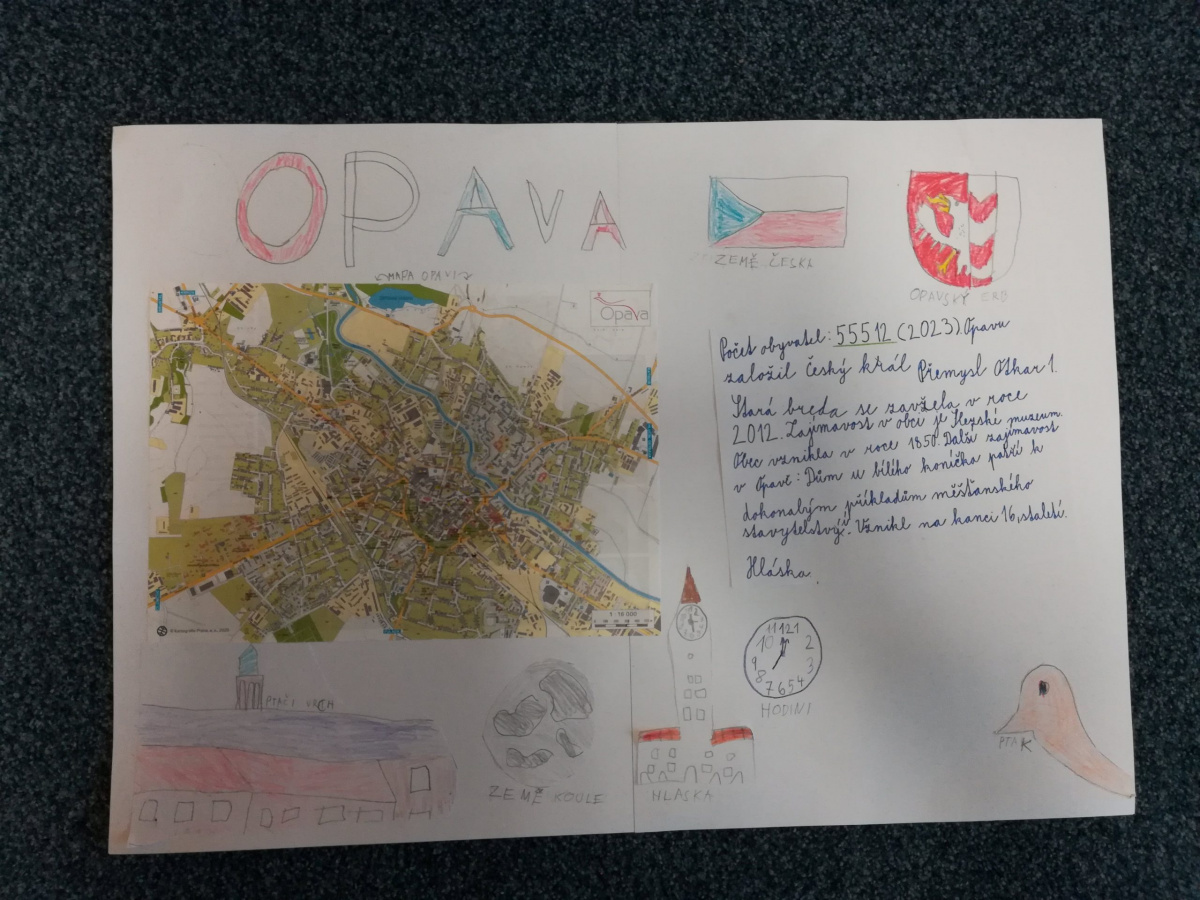 OPAVA
ZEMĚ ČESKA
OPAVSKÝ ERB
MAPA OPAVI
Opava
Počet obyvatel: 55512 (2023) Opavu
založil český král Přemysl Otkar 1.
Stará breda se zavžela v roce
2012. Zajímavost v obci je Slezské muzeum.
Obec vznikla v roce 1850. Další zajímavost
v Opavě: Dům u bílého koníčka patří k
dokonabým příkladům měšťanského
stavytelstvý. Vznikl na kanci 16, staletí.
Hláska.
1 : 16 000
PTAČI VRCH
ZEMĚ KOULE
HLASKA
11 12 1
10 2
9 3
8 7 6 5 4
HODINI
PTAK